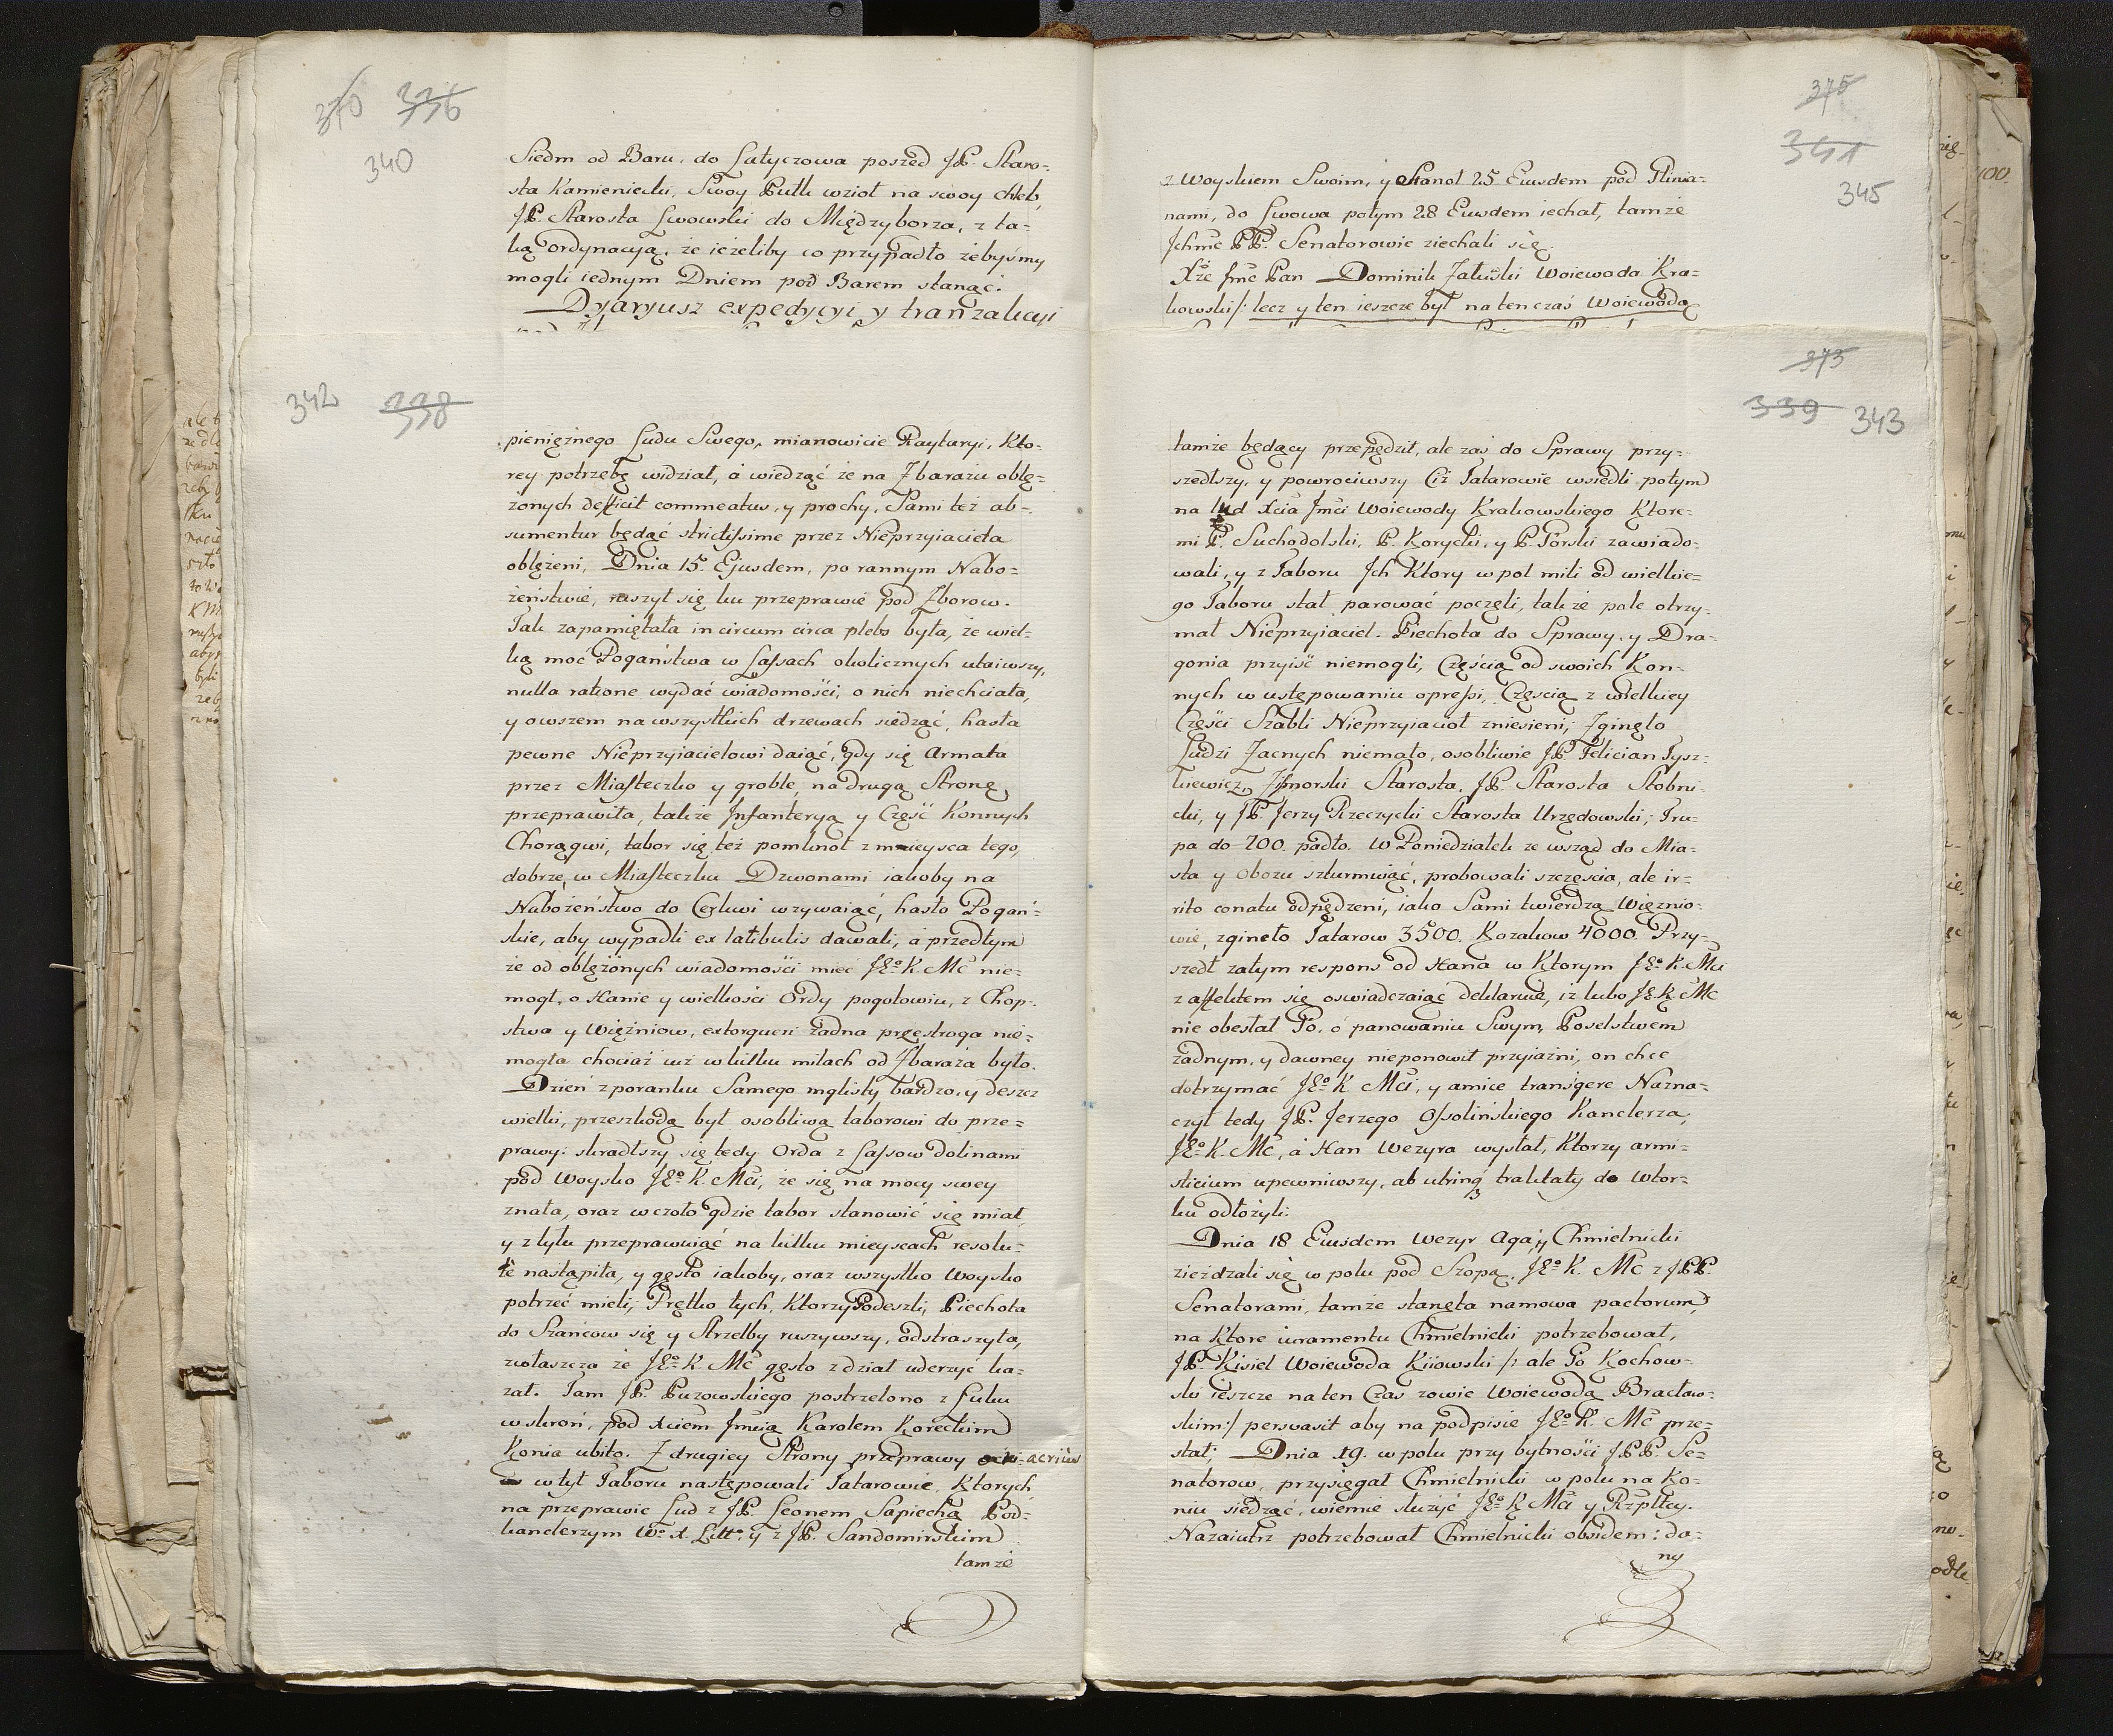 370 336
340
Siedm od Baru, do Latyczowa poszed JP. Staro-
sta Kamieniecki, Swoy Pulk wzioł na swoy chleb,
JP. Starosta Lwowski do Międzyborza, z ta-
ką ordynacyą, że ieżeliby co przypadło żebyśmy
mogli iednym Dniem pod Barem stanąć.
Dyaryusz expedycyi y tranzakcyi
342 338
pieniężnego Ludu Swego, mianowicie Raytaryi, Kto-
rey potrzebę widział, á wiedząć że na Zbarażu oblę-
żonych deficit commeatus, y prochy, Sami też ab-
sumentur będąć strictissime przez Nieprzyiaciela
oblężeni, Dnia 15. Ejusdem, po rannym Nabo-
żeństwie, ruszył się ku przeprawie pod Zborow.
Tak zapamiętała in circum circa plebs była, że wiel-
ką moć Pogaństwa w Lassach okolicznych utaiwszy,
nulla ratione wydać wiadomości, o nich niechciała,
y owszem na wszystkich drzewach siedząć, hasła
pewne Nieprzyiacielowi daiąć, gdy się Armata
przez Miasteczko y groble, na drugą Stronę
przeprawiła, także Infanteryą y Część Konnych
Chorągwi, tabor się też pomknoł z mieysca tego,
dobrze, w Miasteczku Dzwonami iakoby na
Nabożeństwo do Cerkwi wzywaiąć, hasło Pogań-
skie, aby wypadli ex latibulis dawali, á przedtym
że od oblężonych wiadomości mieć JEº K. Mć nie-
mogł, o Hanie y wielkości Ordy pogotowiu, z Chop-
stwa y Więźniow, extorqueri żadna przestroga nie-
mogła chociaż iuż w kilku milach od Zbaraża było.
Dzień z poranku Samego mglisty bardzo, y deszcz
wielki, przeszkodą był osobliwą taborowi do prze-
prawy: skradłszy się tedy Orda z Lassow dolinami
pod Woysko JEº K. Mći, że się na mocy swey
znała, oraz w czoło gdzie tabor stanowić się miał
y z tyłu przeprawuiąć na kilku mieyscach resolu-
te nastąpiła, y gęsto iakoby, oraz wszystko Woysko
potrzeć mieli, Prętko tych, Ktorzy Podeszli, Piechota
do Szańcow się y Strzelby ruszywszy, odstraszyła,
zwłaszcza że JEº K. Mć gęsto z dział uderzyć ka-
zał. Tam JP. Puzowskiego postrzelono z Łuku
w skroń, pod Xciem Jmcią Karolem Koreckim
Konia ubito. Z drugiey Strony przeprawy acrius
w tył Taboru następowali Tatarowie, Ktorych
na przeprawie Lud z JP. Leonem Sapiechą Pod-
kanclerzym Wº X. Littº y z JP. Sandomirskim
tamże
375
341
345
z Woyskiem Swoim, y stanoł 25 Eiusdem pod Glinia-
nami, do Lwowa potym 28 Eiusdem iechał, tamże
Ichmć PP. Senatorowie ziechali się.
Xże Jmć Pan Dominik Załuski Woiewoda Kra-
kowski /: lecz y ten ieszcze był na ten czas Woiewodą
373
339 343
tamże będący przepędził, ale zaś do Sprawy przy-
szedłszy, y powrociwszy Ciż Tatarowie wsiedli potym
na lud Xcia Jmći Woiewody Krakowskiego Ktore-
mi P. Suchodolski, P. Korycki, y P. Gorski zawiado-
wali, y z Taboru Ich Ktory w pol mili od wielkie-
go Taboru stał parować poczęli, tak że pole otrzy-
mał Nieprzyiaciel. Piechota do Sprawy, y Dra-
gonia przyiść niemogli, Częścią od swoich Kon-
nych w ustępowaniu opressi, Częscią z wielkiey
Części Szabli Nieprzyiacioł zniesieni, Zginęło
Ludzi Zacnych niemało, osobliwie JP. Felician Tysz-
kiewicz, Zmorski Starosta, JP. Starosta Stobni-
cki, y JP. Jerzy Rzeczycki Starosta Urzędowski; Tru-
pa do 700. padło. W Poniedziałek ze wsząd do Mia-
sta y Obozu szturmuiąć, probowali szczęscia, ale ir-
rito conatu odpędzeni, iako Sami twierdzą Więznio-
wie, zgineło Tatarow 3500. Kozakow 4000. Przy-
szedł zatym respons od Hana w Ktorym JEº K. Mći
z affektem się oswiadczaiąc deklaruie, iż lubo JE K Mć
nie obesłał Go, o panowaniu Swym, Poselstwem
żadnym, y dawney nieponowił przyiaźni, on chce
dotrzymać JEº K Mći, y amice transigere Nazna-
czył tedy JP. Jerzego Ossolińskiego Kanclerza,
JEº K. Mć, á Han Wezyra wysłał, Ktorzy armi-
sticium upewniwszy, ab utrinq traktaty do Wtor-
ku odłożyli:
Dnia 18 Eiusdem Wezyr Aga, y Chmielnicki
zieżdzali się w polu pod Szopą. JEº K. Mć z JPP.
Senatorami, tamże stanęła namowa pactorum,
na Ktore iuramentu Chmielnicki potrzebował,
JP. Kisiel Woiewoda Kiiowski /: ale Go Kochow-
ski ieszcze na ten Czas zowie Woiewodą Bracław-
skim :/ perswasit aby na podpisie JEº K. Mć prze-
stał; Dnia 19. w polu przy bytności JPP. Se-
natorow, przysięgał Chmielnicki w polu na Ko-
niu siedząć, wiernie służyć JEº K Mći y Rzpltey.
Nazaiutrz potrzebował Chmielnicki obsidem: da-
ny